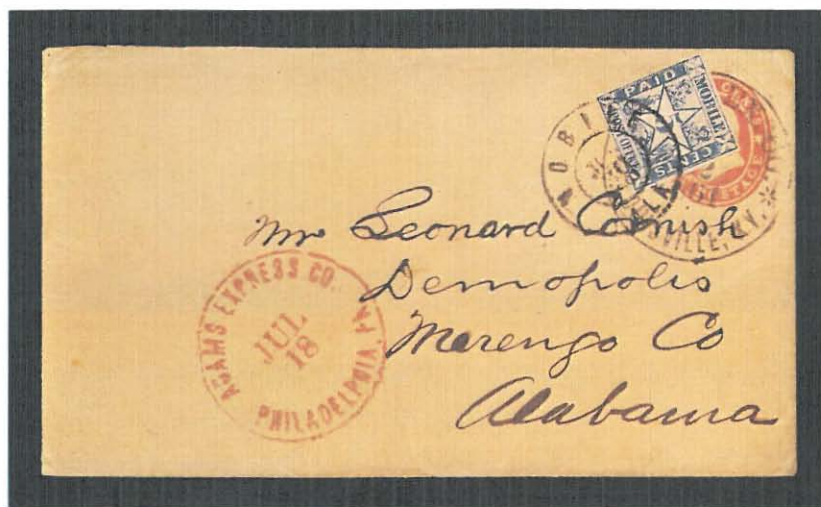 PAID
MOBILE
POST OFFICE
CENTS
MOBI
ALA
VILLE, KY.
POSTAGE
Mr Leonard Cornish
Demopolis
Marengo Co
Alabama
ADAMS EXPRESS CO.
JUL
18
PHILADELPHIA, PA